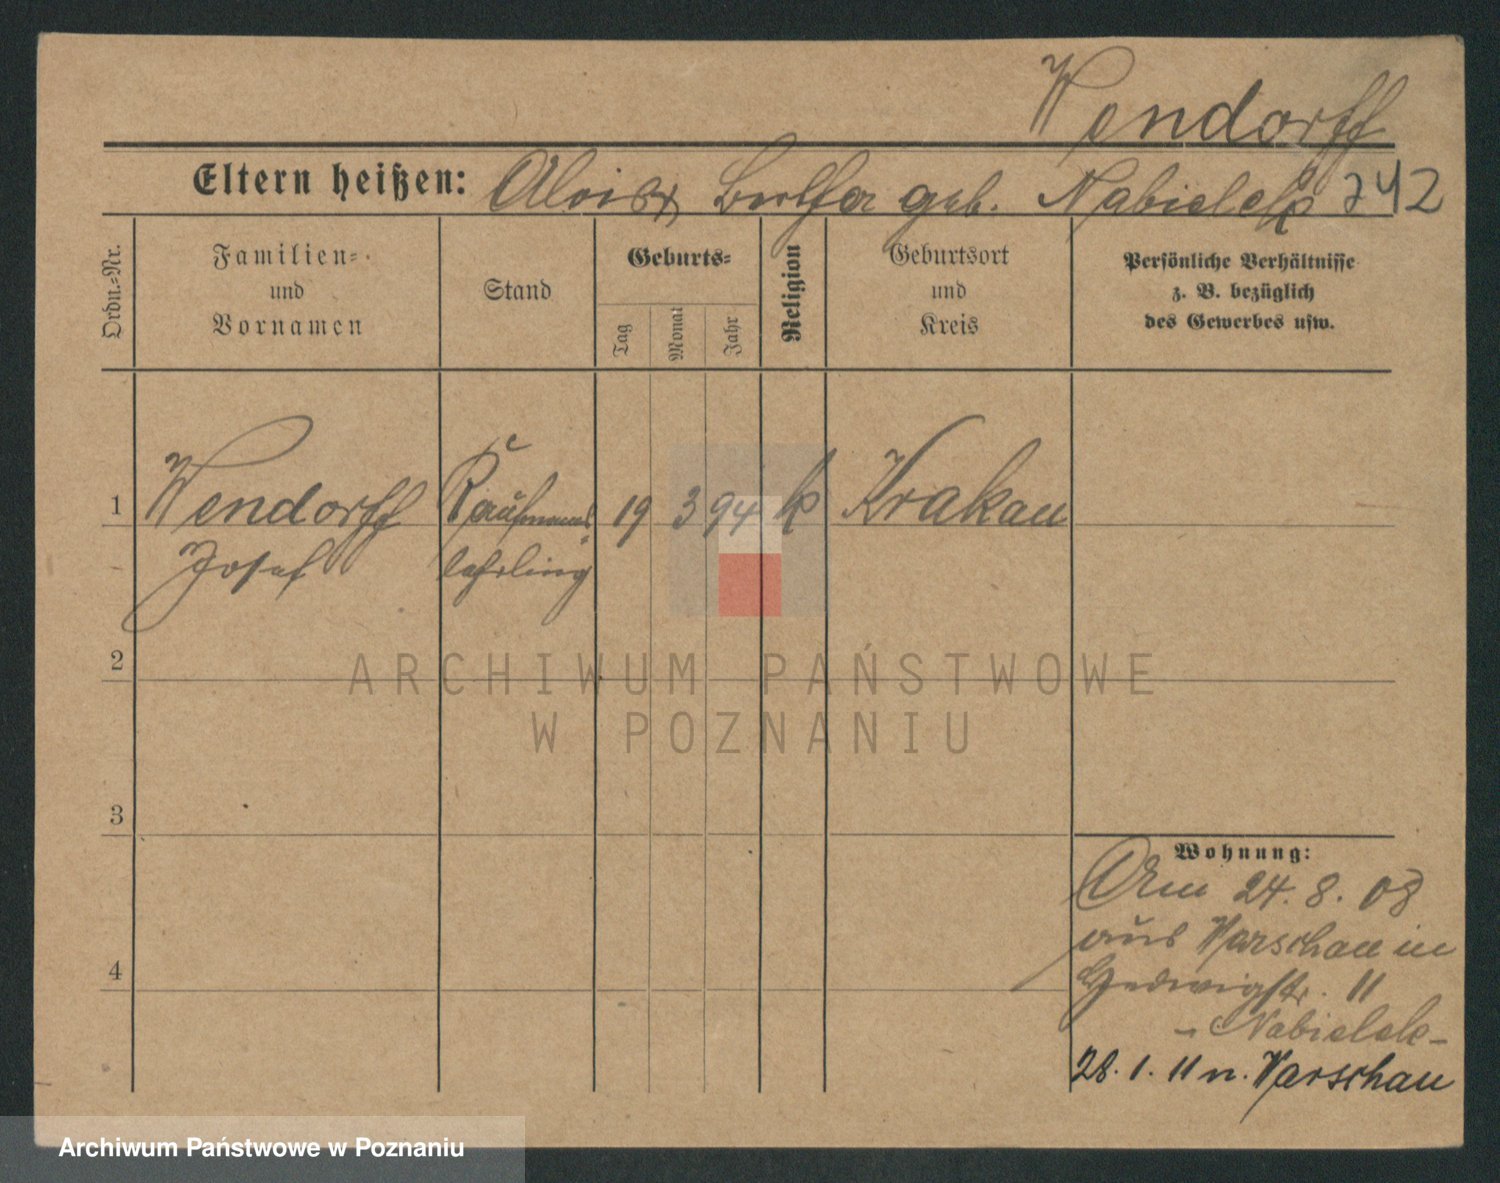 Wendorff
Eltern heißen: Alois geb. Nabielek 742
Ordn.-Nr.
Familien-
und
Vornamen
Stand
Geburts-
Tag
Monat
Jahr
Religion
Geburtsort
und
Kreis
Persönliche Verhältnisse
z. B. bezüglich
des Gewerbes usw.
1 Wendorff Kaufmanns 19 3 94 k Krakau
Josef lehrling
2
3
4
Wohnung:
Am 24. 8. 08
aus Warschau in
Hedwigstr. 11
- Nabielek -
28. 1. 11 n. Warschau
ARCHIWUM PAŃSTWOWE
W POZNANIU
Archiwum Państwowe w Poznaniu